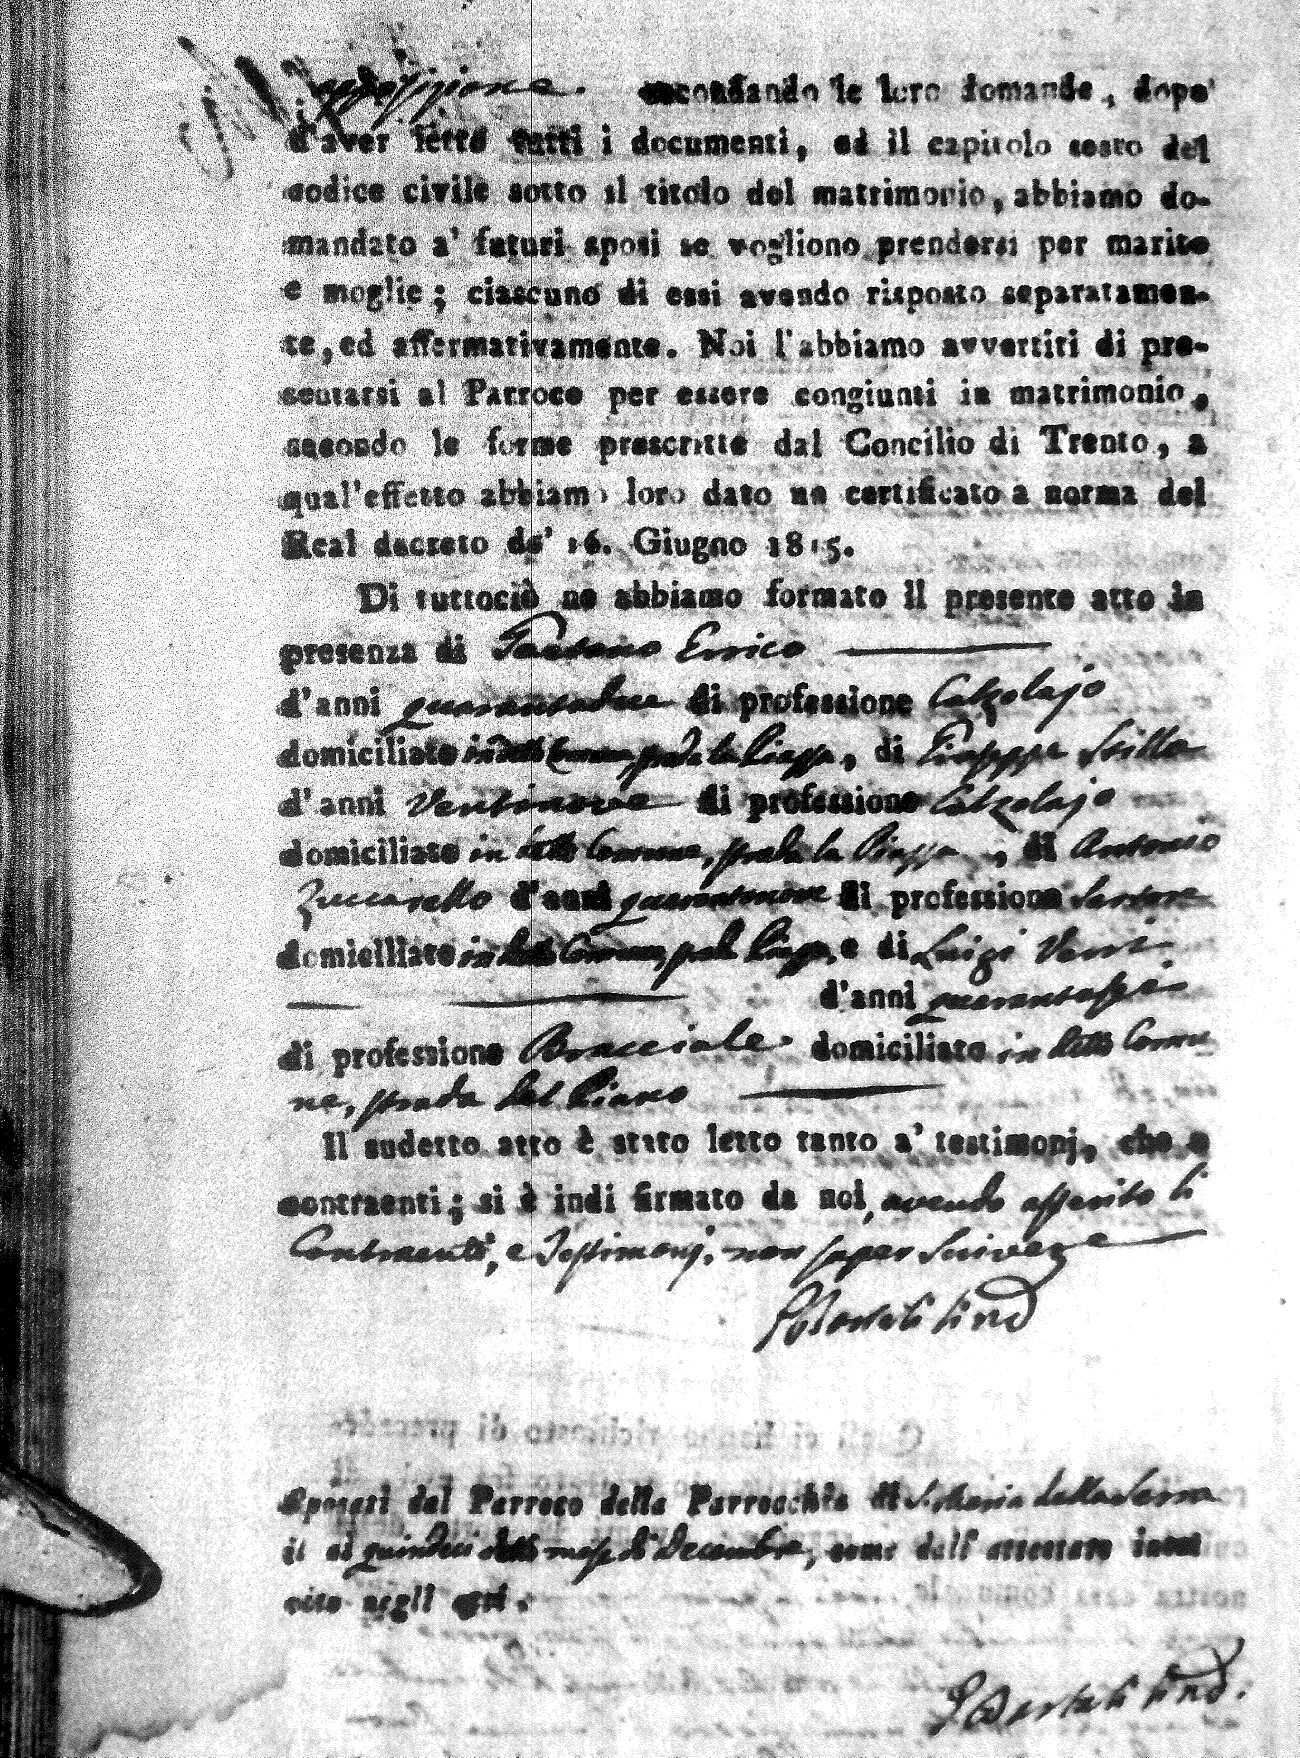 opposizione. secondando le loro domande, dopo
d'aver letto tutti i documenti, ed il capitolo sesto del
codice civile sotto il titolo del matrimonio, abbiamo do-
mandato a' futuri sposi se vogliono prendersi per marito
e moglie; ciascuno di essi avendo risposto separatamen-
te, ed affermativamente. Noi l'abbiamo avvertiti di pre-
sentarsi al Parroco per essere congiunti in matrimonio,
secondo le forme prescritte dal Concilio di Trento, a
qual'effetto abbiamo loro dato un certificato a norma del
Real decreto de' 16. Giugno 1815.
Di tuttociò ne abbiamo formato il presente atto in
presenza di Gaetano Errico
d'anni quarantadue di professione Calzolajo
domiciliato in detta Comune, strada la Piazza, di Giuseppe Scilla
d'anni Ventinove di professione Calzolajo
domiciliato in detta Comune, strada la Piazza, di Antonio
Zuccarello d'anni quarantanove di professione Sartore
domiciliato in detta Comune, strada Piazza, e di Luigi Verri
d'anni quarantasei
di professione Bracciale domiciliato in detta Comu
ne, strada del Piano
Il sudetto atto è stato letto tanto a' testimonj, che a
contraenti; si è indi firmato da noi, avendo asserito li
Contraenti, e Testimonj, non saper Scrivere
Sposati dal Parroco della Parrocchia di S. Maria della Serra
il dì quindici detto mese di Decembre, come dall' attestato inse
rito negli atti.